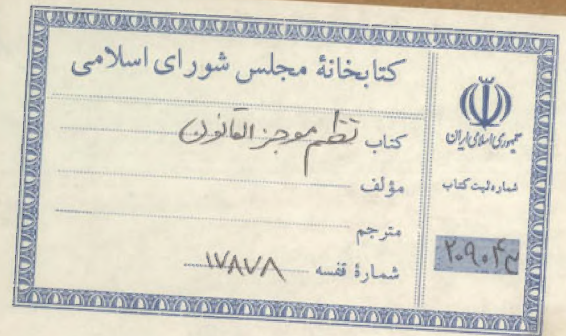 کتابخانهٔ مجلس شورای اسلامی
کتاب نظم موجز القانون
مؤلف
مترجم
شمارهٔ قفسه ۱۷۸۷۸
جمهوری اسلامی ایران
شماره ثبت کتاب